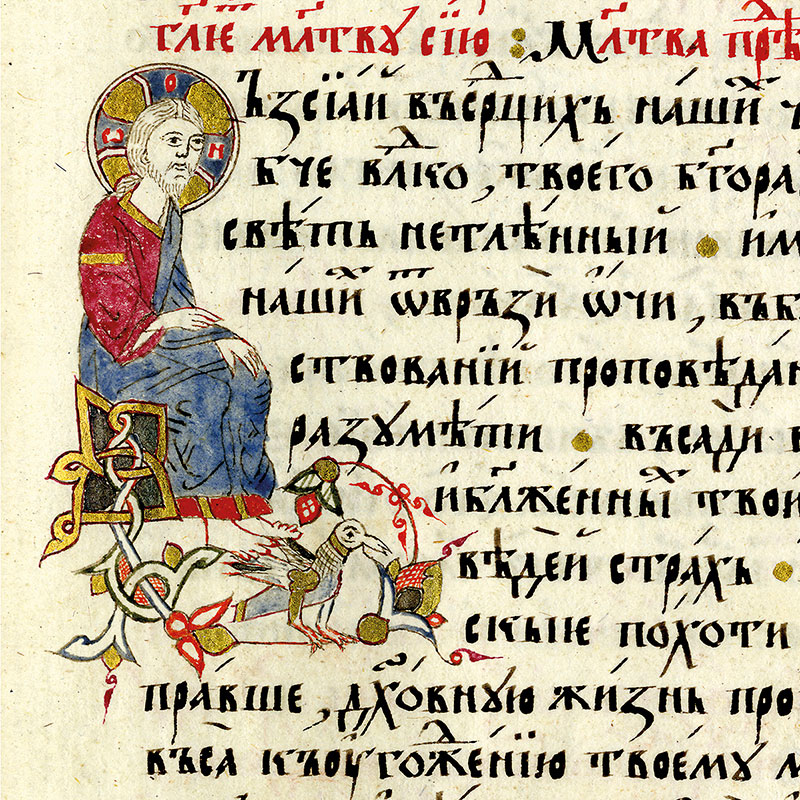 гл҃ѥ мл҃тву сїю : Мл҃тва прѣ
Ъзсїѧ́й въ ср҃дцихъ на́шиⷯ
бч҃е вл҃ко , твоего̀ бг҃ора
свѣ́тъ нетлѣ́нный • и҆м
на́шиⷯ ѿврьзѝ ѻ҆чи , въ
ствованїй проповѣда
разꙋмѣ́ти • въсадѝ
и бл҃же́нныⷯ твои
вѣ́дей стра́хъ •
скыѥ по́хоти
пра́вше , дх҃о́вную жи́знь про
въсѧ̀ къ оуго҃же́нїю твоемꙋ̀
Ѡ О Н